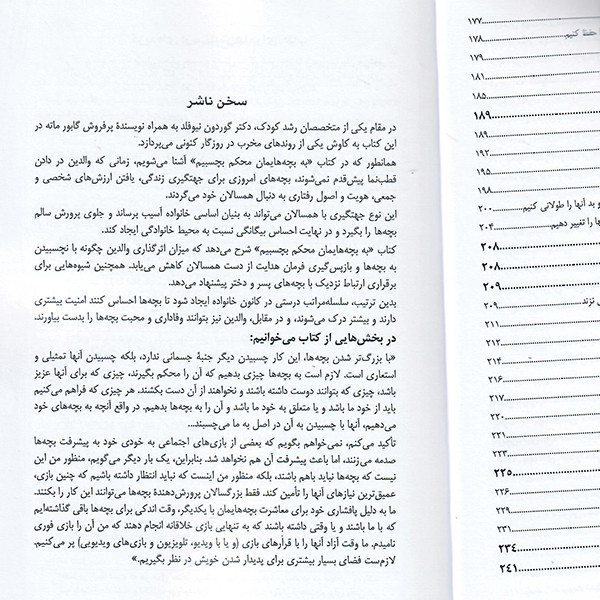 سخن ناشر
در مقام یکی از متخصصان رشد کودک، دکتر گوردون نیوفلد به همراه نویسندهٔ پرفروش گابور ماته در
این کتاب به کاوش یکی از روندهای مخرب در روزگار کنونی می‌پردازد.
همانطور که در کتاب «به بچه‌هایمان محکم بچسبیم» آشنا می‌شویم، زمانی که والدین در دادن
قطب‌نما پیش‌قدم نمی‌شوند، بچه‌های امروزی برای جهتگیری زندگی، یافتن ارزش‌های شخصی و
جمعی، هویت و اصول رفتاری به دنبال همسالان خود می‌گردند.
این نوع جهتگیری با همسالان می‌تواند به بنیان اساسی خانواده آسیب برساند و جلوی پرورش سالم
بچه‌ها را بگیرد و در نهایت احساس بیگانگی نسبت به محیط خانوادگی ایجاد کند.
کتاب «به بچه‌هایمان محکم بچسبیم» شرح می‌دهد که میزان اثرگذاری والدین چگونه با نچسبیدن
به بچه‌ها و بازپس‌گیری فرمان هدایت از دست همسالان کاهش می‌یابد. همچنین شیوه‌هایی برای
برقراری ارتباط نزدیک با بچه‌های پسر و دختر پیشنهاد می‌دهد.
بدین ترتیب، سلسله‌مراتب درستی در کانون خانواده ایجاد شود تا بچه‌ها احساس کنند امنیت بیشتری
دارند و بیشتر درک می‌شوند، و در مقابل، والدین نیز بتوانند وفاداری و محبت بچه‌ها را بدست بیاورند.
در بخش‌هایی از کتاب می‌خوانیم:
«با بزرگ‌تر شدن بچه‌ها، این کار چسبیدن دیگر جنبهٔ جسمانی ندارد، بلکه چسبیدن آنها تمثیلی و
استعاری است. لازم است به بچه‌ها چیزی بدهیم که آن را محکم بگیرند، چیزی که برای آنها عزیز
باشد، چیزی که بتوانند دوست داشته باشند و نخواهند از آن دست بکشند. هر چیزی که فراهم می‌کنیم
باید از خود ما باشد و یا متعلق به خود ما باشد و آن را به بچه‌ها بدهیم. در واقع آنچه به بچه‌های خود
می‌دهیم، آنها با چسبیدن به آن در اصل به ما می‌چسبند...
تأکید می‌کنم، نمی‌خواهم بگویم که بعضی از بازی‌های اجتماعی به خودی خود به پیشرفت بچه‌ها
صدمه می‌زنند، اما باعث پیشرفت آن هم نخواهد شد. بنابراین، یک بار دیگر می‌گویم، منظور من این
نیست که بچه‌ها نباید باهم باشند، بلکه منظور من اینست که نباید انتظار داشته باشیم که چنین بازی،
عمیق‌ترین نیازهای آنها را تأمین کند. فقط بزرگسالان پرورش‌دهندهٔ بچه‌ها می‌توانند این کار را بکنند.
ما به دلیل پافشاری خود برای معاشرت بچه‌هایمان با یکدیگر، وقت اندکی برای بچه‌ها باقی گذاشته‌ایم
که با ما باشند و یا وقتی داشته باشند که به تنهایی بازی خلاقانه انجام دهند که من آن را بازی فوری
نامیدم. ما وقت آزاد آنها را با قرارهای بازی (و یا با ویدیو، تلویزیون و بازی‌های ویدیویی) پر می‌کنیم.
لازم‌ست فضای بسیار بیشتری برای پدیدار شدن خویش در نظر بگیریم.»
۱۷۷
حفظ کنیم ۱۷۸
۱۷۹
۱۸۱
۱۸۵
۱۸۹
۱۸۹
۱۹۲
۱۹۵
۱۹۸
و بد آنها را طولانی کنیم ۲۰۰
ها را تغییر دهیم ۲۰۴
۲۰۸
۲۰۸
۲۰۹
نزند ۲۰۹
۲۱۱
۲۱۲
۲۱۴
۲۱۶
۲۱۷
۲۲۰
۲۲۱
۲۲۳
۲۲۵
۲۲۶
۲۲۹
۲۳۱
۲۳۴
۲۴۱